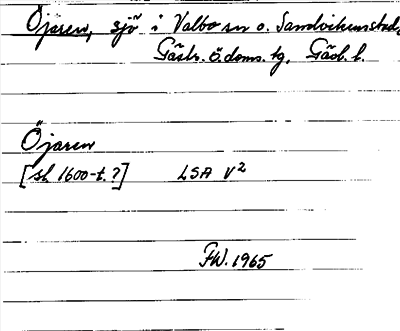 Öjaren, sjö i Valbo sn o. Sandvikens stad,
Gästr. ö. doms. tg, Gävl. l.
Öjaren
[sl 1600-t.?] LSA V2
FW. 1965